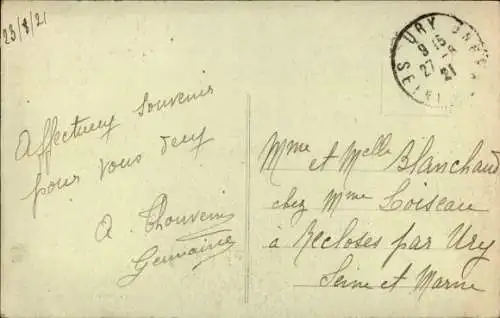 23/8/21
URY
9 15
27 -8
21
Affectueux souvenir
pour vous deux
A Thouvenin
Germaine
Mme et Melle Blanchaud
chez Mme Loiseau
à Recloses par Ury
Seine et Marne